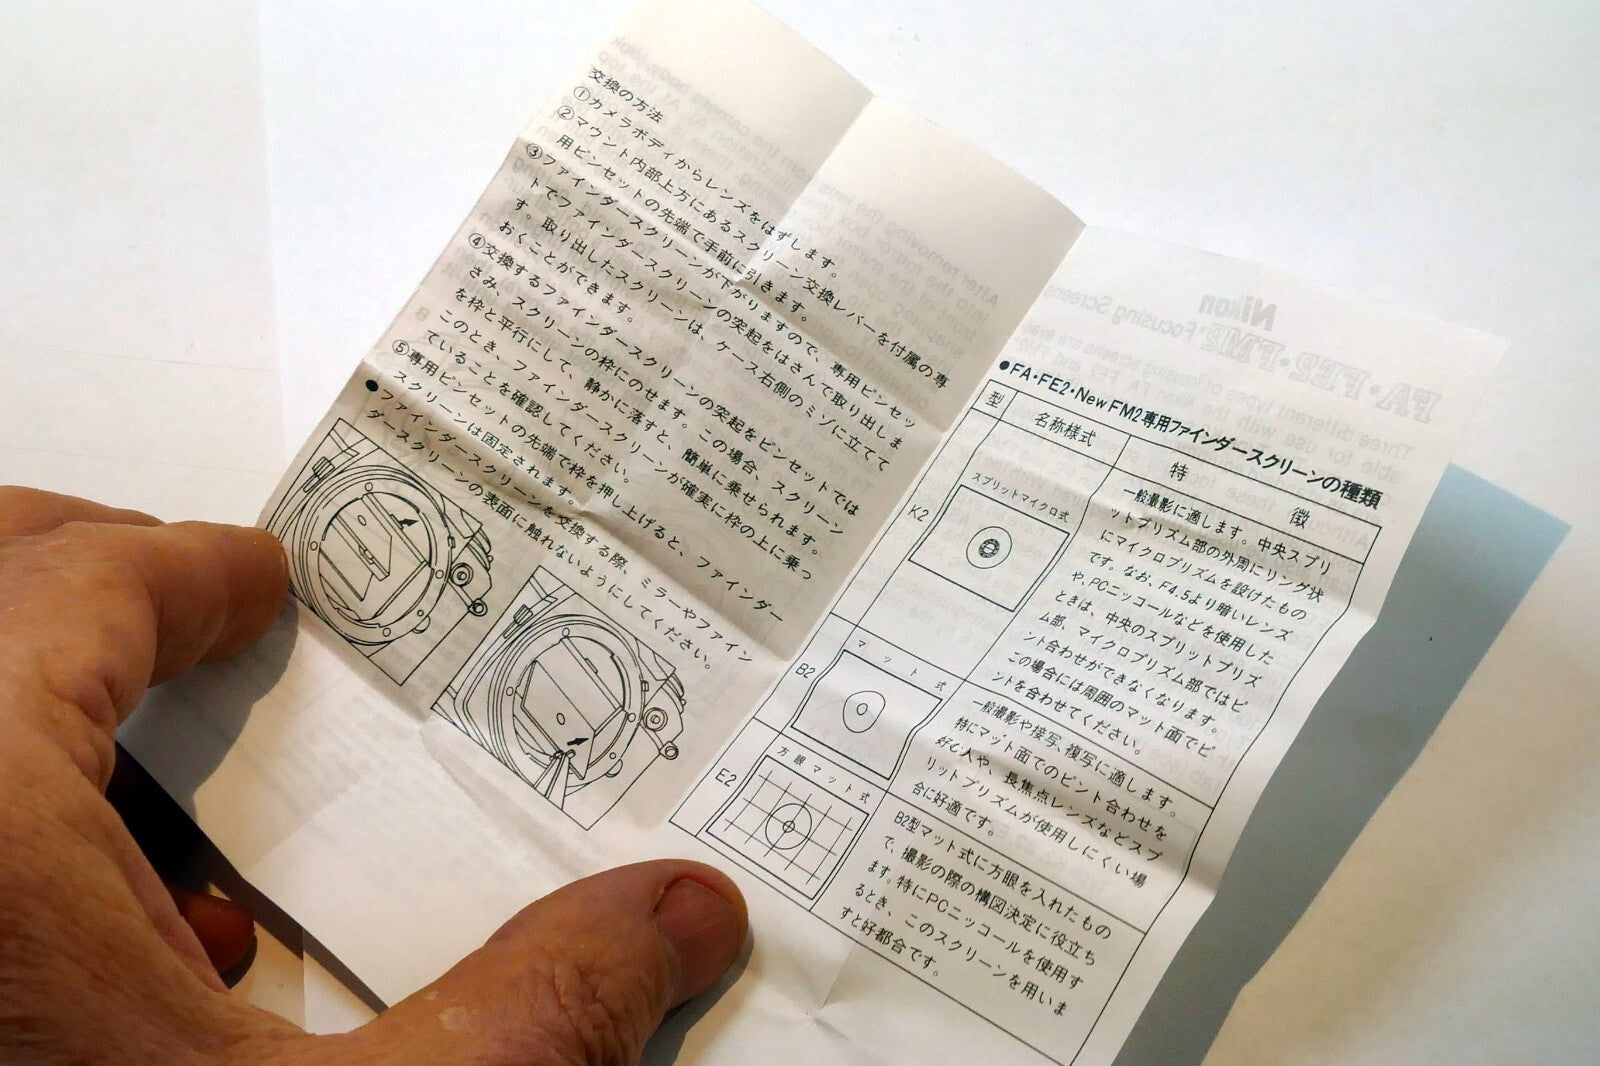 交換の方法
①カメラボディからレンズをはずします。
②マウント内部上方にあるスクリーン交換レバーを付属の専
用ピンセットの先端で手前に引きます。
③ファインダースクリーンが下がりますので、専用ピンセッ
トでファインダースクリーンの突起をはさんで取り出しま
す。取り出したスクリーンは、ケース右側のミゾに立てて
おくことができます。
④交換するファインダースクリーンの突起をピンセットでは
さみ、スクリーンの枠にのせます。この場合、スクリーン
を枠と平行にして、静かに落すと、簡単に乗せられます。
このとき、ファインダースクリーンが確実に枠の上に乗っ
ていることを確認してください。
⑤専用ピンセットの先端で枠を押し上げると、ファインダー
スクリーンは固定されます。
●ファインダースクリーンを交換する際、ミラーやファイン
ダースクリーンの表面に触れないようにしてください。
●FA・FE2・New FM2専用ファインダースクリーンの種類
型 名称様式 特徴
K2 スプリットマイクロ式
一般撮影に適します。中央スプリ
ットプリズム部の外周にリング状
にマイクロプリズムを設けたもの
です。なお、F4.5より暗いレンズ
や、PCニッコールなどを使用した
ときは、中央のスプリットプリズ
ム部、マイクロプリズム部ではピ
ント合わせができなくなります。
この場合には周囲のマット面でピ
ントを合わせてください。
B2 マット式
一般撮影や接写、複写に適します。
特にマット面でのピント合わせを
好む人や、長焦点レンズなどスプ
リットプリズムが使用しにくい場
合に好適です。
E2 方眼マット式
B2型マット式に方眼を入れたもの
で、撮影の際の構図決定に役立ち
ます。特にPCニッコールを使用す
るとき、このスクリーンを用いま
すと好都合です。
Nikon
FA・FE2・FM2 Focusing Screens